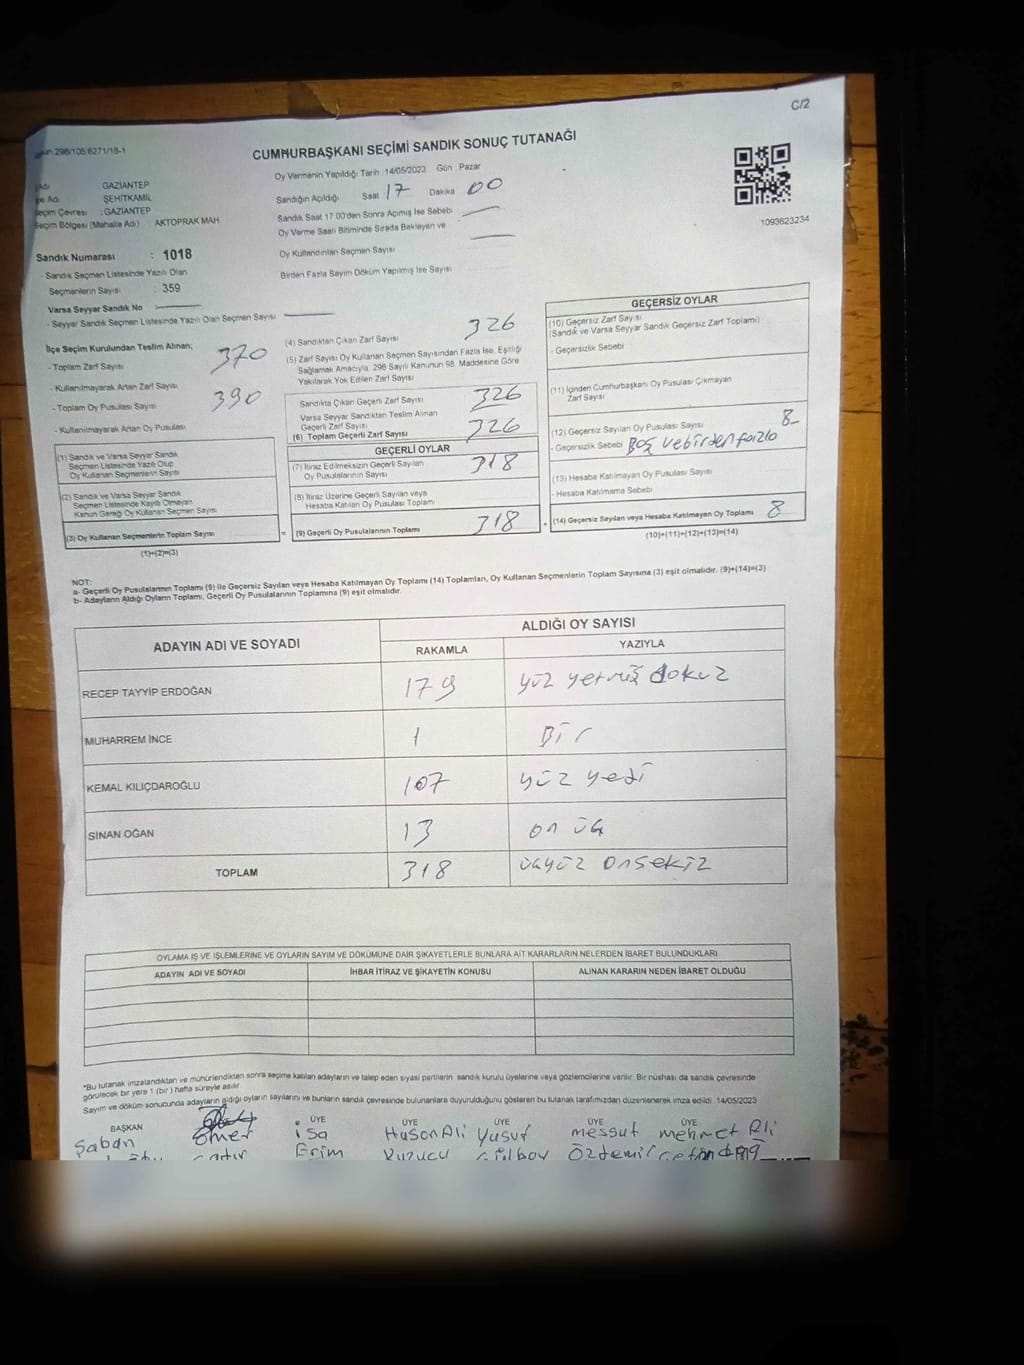 C/2
298/105/6271/18-1
CUMHURBAŞKANI SEÇİMİ SANDIK SONUÇ TUTANAĞI
Oy Vermenin Yapıldığı Tarih : 14/05/2023 Gün Pazar
Adı GAZİANTEP
Adı ŞEHİTKAMİL
Seçim Çevresi : GAZİANTEP
Seçim Bölgesi (Mahalle Adı) : AKTOPRAK MAH.
Sandığın Açıldığı Saat 17 Dakika 00
Sandık Saat 17 00'den Sonra Açılmış İse Sebebi
Oy Verme Saati Bitiminde Sırada Bekleyen ve
Oy Kullandırılan Seçmen Sayısı
Birden Fazla Sayım Döküm Yapılmış İse Sayısı
1093623234
Sandık Numarası : 1018
- Sandık Seçmen Listesinde Yazılı Olan
Seçmenlerin Sayısı : 359
Varsa Seyyar Sandık No
- Seyyar Sandık Seçmen Listesinde Yazılı Olan Seçmen Sayısı
İlçe Seçim Kurulundan Teslim Alınan;
- Toplam Zarf Sayısı 370
- Kullanılmayarak Artan Zarf Sayısı
- Toplam Oy Pusulası Sayısı 390
- Kullanılmayarak Artan Oy Pusulası
(1) Sandık ve Varsa Seyyar Sandık
Seçmen Listesinde Yazılı Olup
Oy Kullanan Seçmenlerin Sayısı
(2) Sandık ve Varsa Seyyar Sandık
Seçmen Listesinde Kayıtlı Olmayan
Kanun Gereği Oy Kullanan Seçmen Sayısı
(3) Oy Kullanan Seçmenlerin Toplam Sayısı
(1)+(2)=(3)
(4) Sandıktan Çıkan Zarf Sayısı 326
(5) Zarf Sayısı Oy Kullanan Seçmen Sayısından Fazla İse, Eşitliği
Sağlamak Amacıyla, 298 Sayılı Kanunun 98. Maddesine Göre
Yakılarak Yok Edilen Zarf Sayısı
Sandıkta Çıkan Geçerli Zarf Sayısı 326
Varsa Seyyar Sandıktan Teslim Alınan
Geçerli Zarf Sayısı
(6) Toplam Geçerli Zarf Sayısı 326
GEÇERLİ OYLAR
(7) İtiraz Edilmeksizin Geçerli Sayılan
Oy Pusulalarının Sayısı 318
(8) İtiraz Üzerine Geçerli Sayılan veya
Hesaba Katılan Oy Pusulası Toplamı
= (9) Geçerli Oy Pusulalarının Toplamı 318 +
GEÇERSİZ OYLAR
(10) Geçersiz Zarf Sayısı
(Sandık ve Varsa Seyyar Sandık Geçersiz Zarf Toplamı)
- Geçersizlik Sebebi
(11) İçinden Cumhurbaşkanı Oy Pusulası Çıkmayan
Zarf Sayısı
(12) Geçersiz Sayılan Oy Pusulası Sayısı 8
- Geçersizlik Sebebi Boş ve birden fazla
(13) Hesaba Katılmayan Oy Pusulası Sayısı
- Hesaba Katılmama Sebebi
(14) Geçersiz Sayılan veya Hesaba Katılmayan Oy Toplamı 8
(10)+(11)+(12)+(13)=(14)
NOT:
a- Geçerli Oy Pusulalarının Toplamı (9) ile Geçersiz Sayılan veya Hesaba Katılmayan Oy Toplamı (14) Toplamları, Oy Kullanan Seçmenlerin Toplam Sayısına (3) eşit olmalıdır. (9)+(14)=(3)
b- Adayların Aldığı Oyların Toplamı, Geçerli Oy Pusulalarının Toplamına (9) eşit olmalıdır.
ADAYIN ADI VE SOYADI ALDIĞI OY SAYISI
RAKAMLA YAZIYLA
RECEP TAYYİP ERDOĞAN 179 yüz yetmiş dokuz
MUHARREM İNCE 1 Bir
KEMAL KILIÇDAROĞLU 107 yüz yedi
SİNAN OĞAN 13 on üç
TOPLAM 318 üçyüz onsekiz
OYLAMA İŞ VE İŞLEMLERİNE VE OYLARIN SAYIM VE DÖKÜMÜNE DAİR ŞİKAYETLERLE BUNLARA AİT KARARLARIN NELERDEN İBARET BULUNDUKLARI
ADAYIN ADI VE SOYADI İHBAR İTİRAZ VE ŞİKAYETİN KONUSU ALINAN KARARIN NEDEN İBARET OLDUĞU
*Bu tutanak imzalandıktan ve mühürlendikten sonra seçime katılan adayların ve talep eden siyasi partilerin sandık kurulu üyelerine veya gözlemcilerine verilir. Bir nüshası da sandık çevresinde
görülecek bir yere 1 (bir) hafta süreyle asılır
Sayım ve döküm sonucunda adayların aldığı oyların sayılarını ve bunların sandık çevresinde bulunanlara duyurulduğunu gösteren bu tutanak tarafımızdan düzenlenerek imza edildi. 14/05/2023
BAŞKAN ÜYE ÜYE ÜYE ÜYE ÜYE
Şaban Ömer İsa Hasan Ali Yusuf Messut Mehmet Ali
Erim Kuzucu Gülboy Özdemir